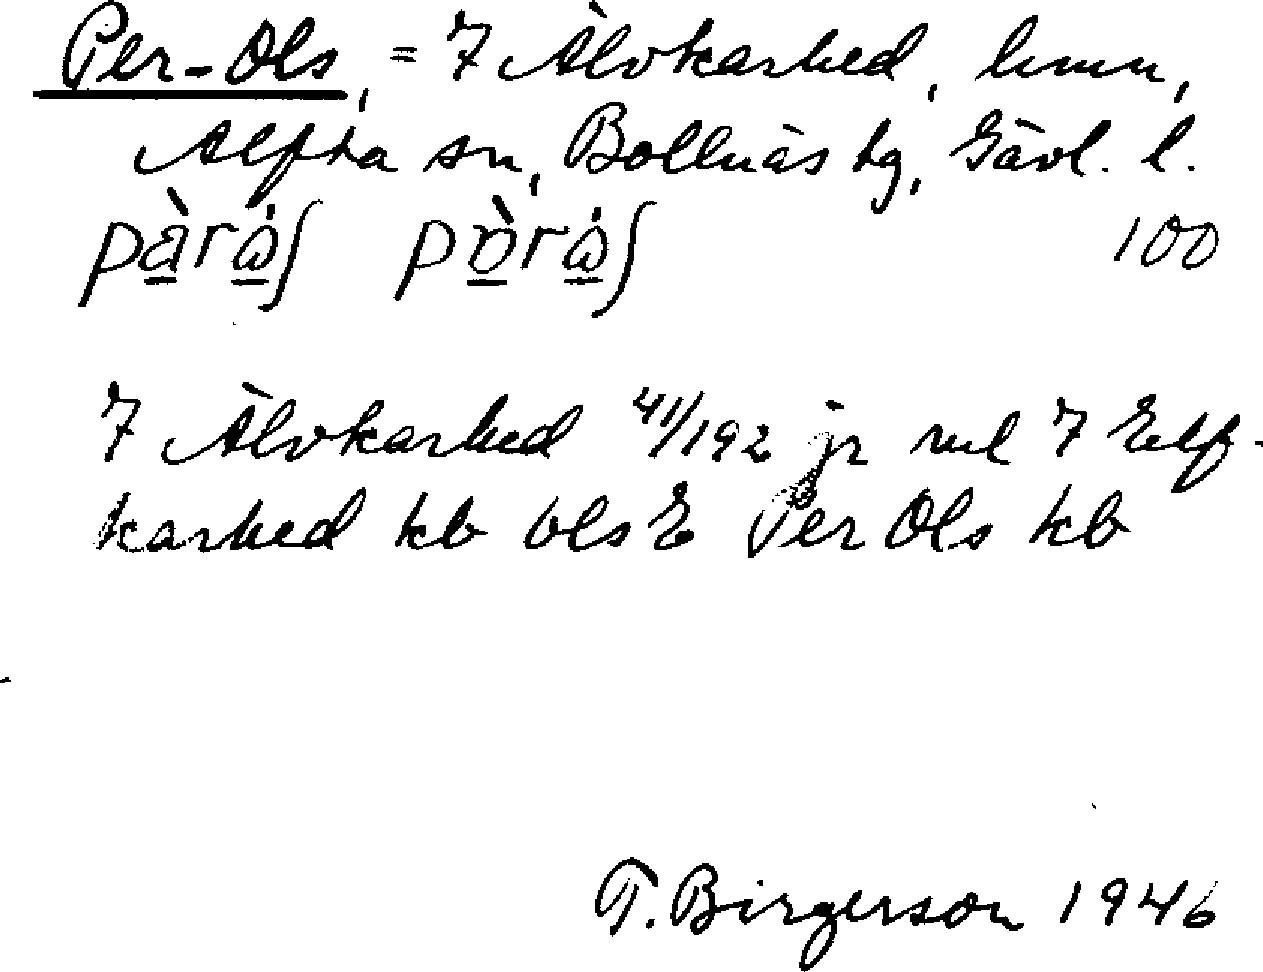 Per-Ols, = 7 Älvkarhed, hmn,
Alfta sn, Bollnäs tg, Gävl. l.
100
7 Älvkarhed 41/192 jr rul 7 Elf-
karhed kb bls E Per Ols kb
T. Birgerson 1946